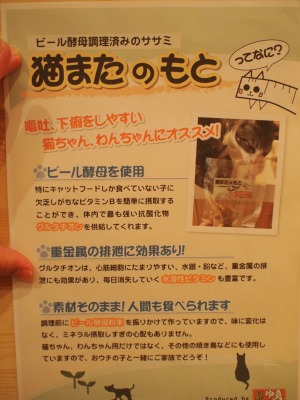 ビール酵母調理済みのササミ
猫またのもと
ってなに？
嘔吐、下痢をしやすい
猫ちゃん、わんちゃんにオススメ！
猫またのもと
ビール酵母を使用
特にキャットフードしか食べていない子に
欠乏しがちなビタミンBを簡単に摂取する
ことができ、体内で最も強い抗酸化物
グルタチオンを供給してくれます。
重金属の排泄に効果あり！
グルタチオンは、心筋細胞にたまりやすい、水銀・鉛など、重金属の排
泄にも効果があり、毎日消失していく水溶性ビタミンも豊富です。
素材そのまま！人間も食べられます
調理前にビール酵母粉末を振りかけて作っていますので、味に変化は
なく、ミネラル摂りすぎの心配もありません。
猫ちゃん、わんちゃん用だけではなく、その他の焼き鳥などにも使用し
ていますので、おウチの子と一緒にご家族でどうぞ！
Produced by